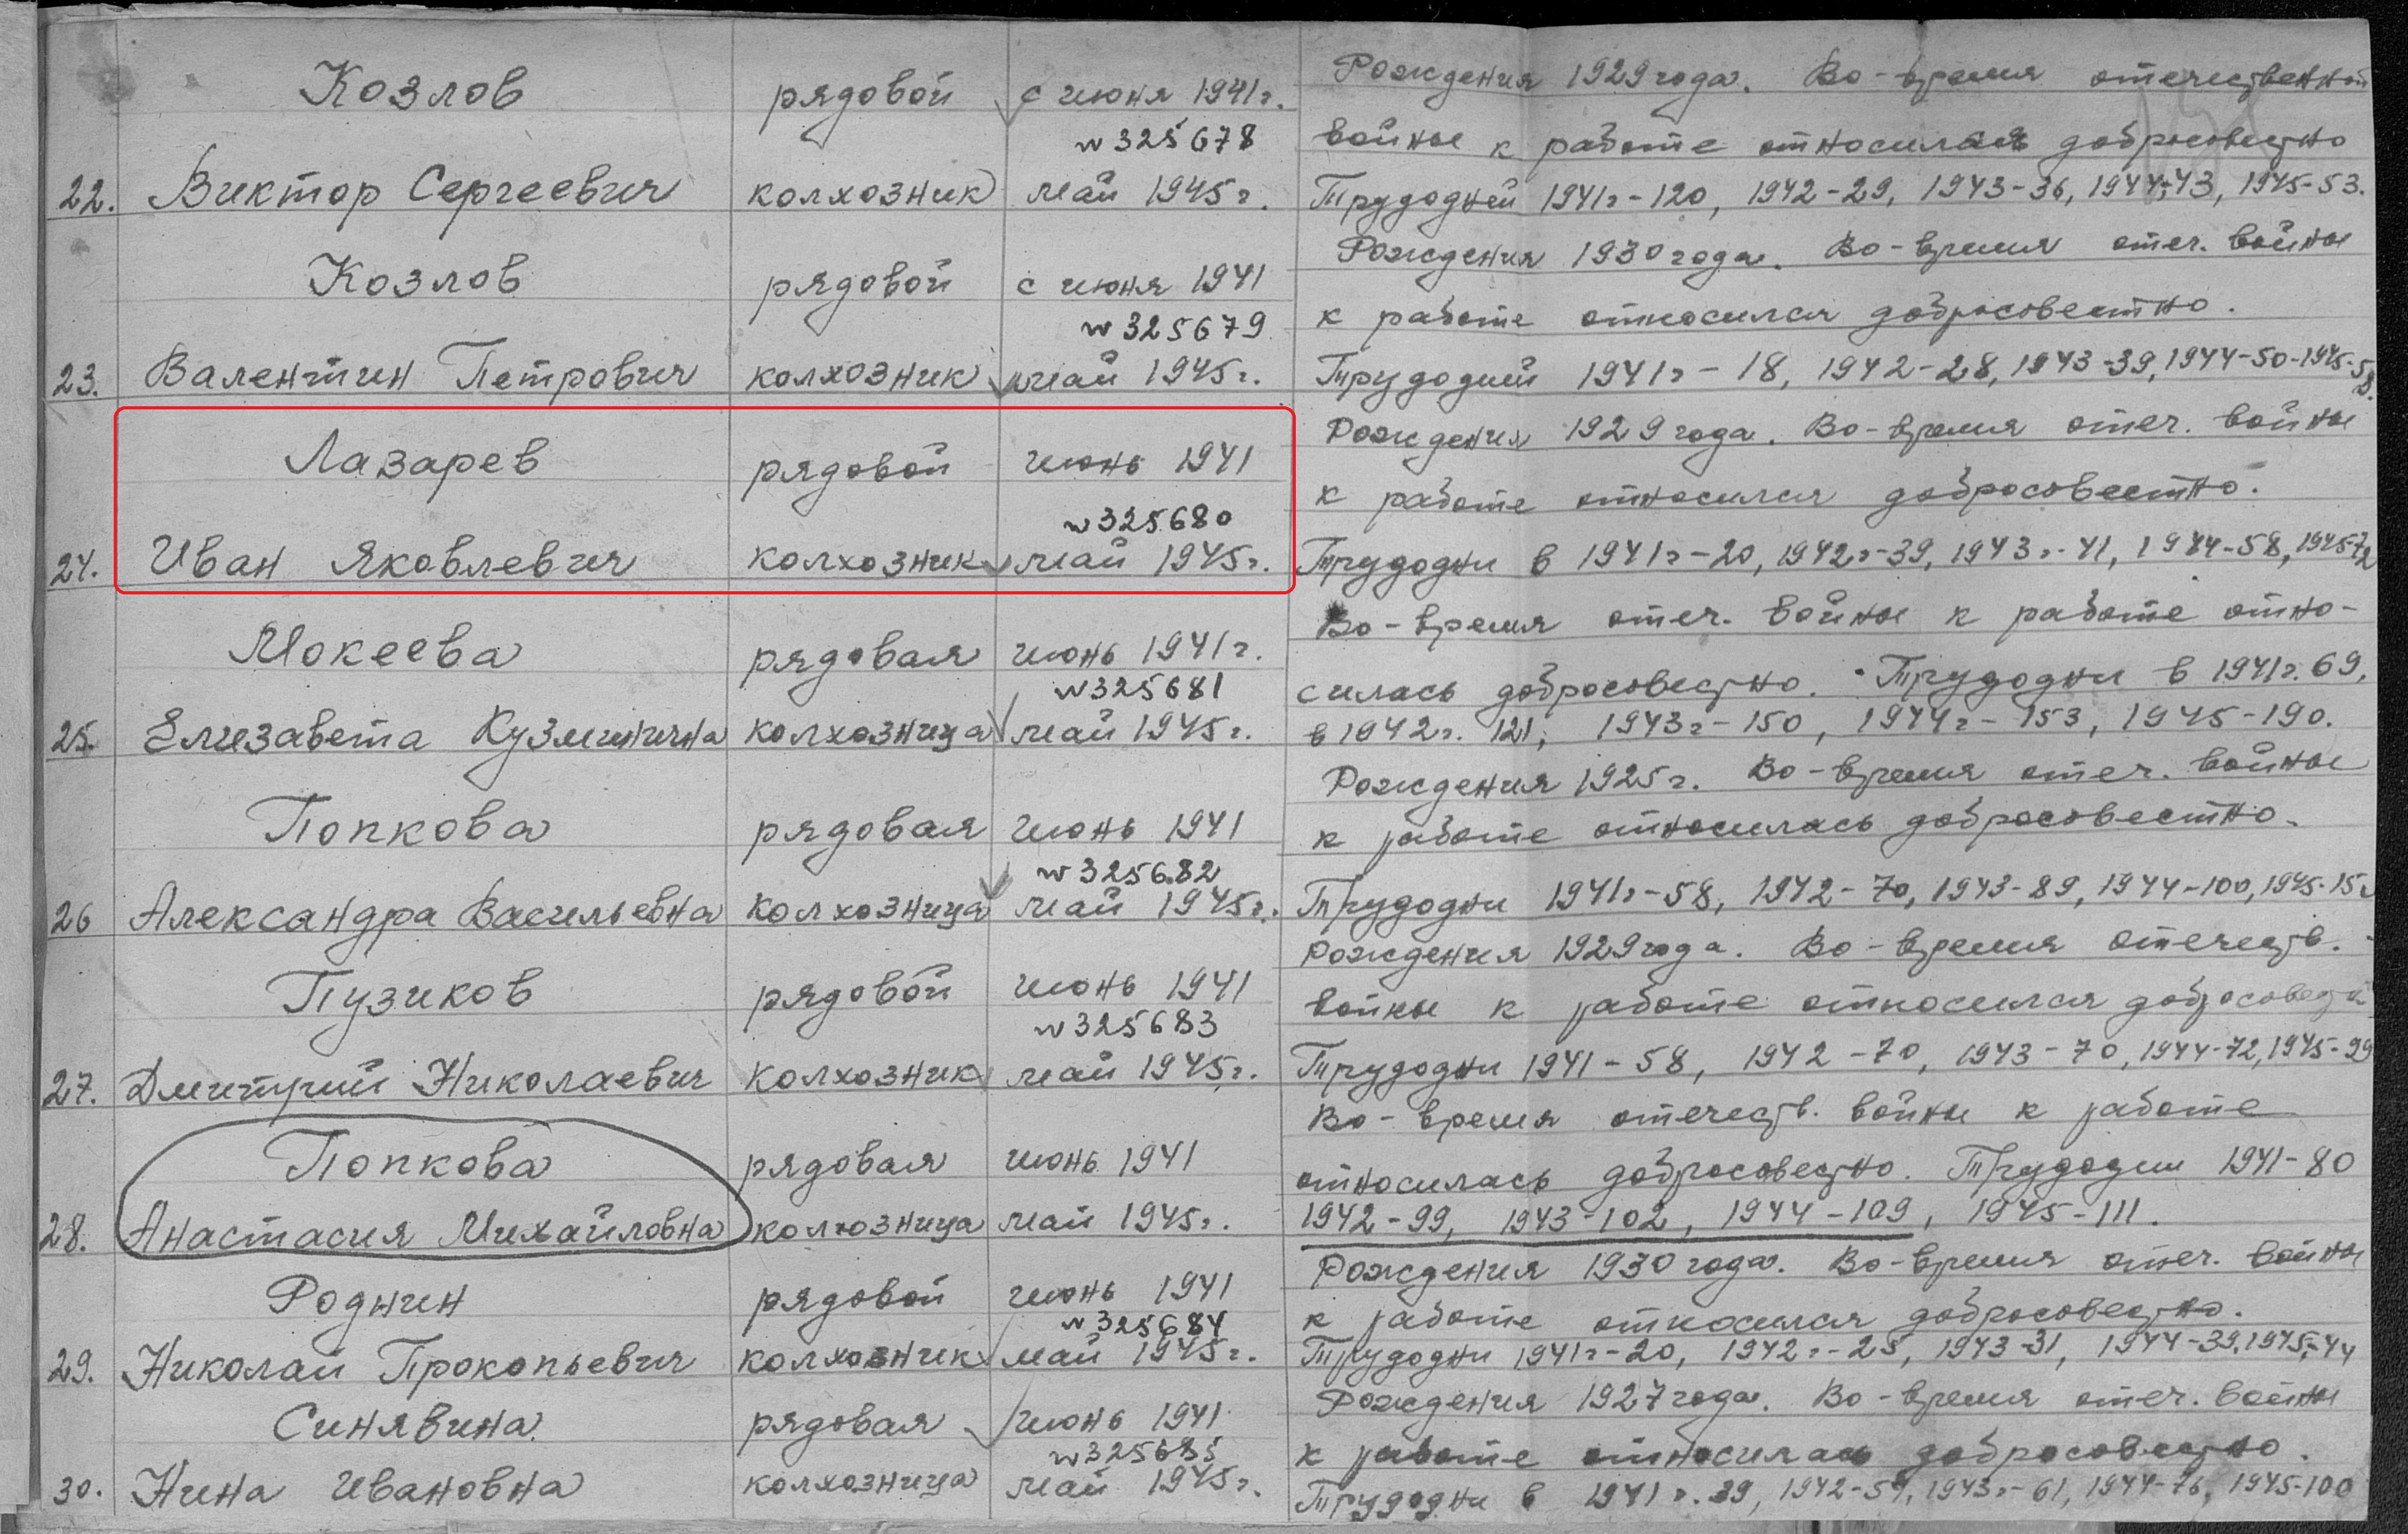 Козлов рядовой с июня 1941г. Рождения 1929 года. Во-время отечественной
w 325678 войны к работе относился добросовестно
22. Виктор Сергеевич колхозник май 1945г. Трудодней 1941г-120, 1942-29, 1943-36, 1944-43, 1945-53.
Козлов рядовой с июня 1941 Рождения 1930 года. Во-время отеч. войны
w 325679 к работе относился добросовестно.
23. Валентин Петрович колхозник май 1945г. Трудодней 1941г-18, 1942-28, 1943-39, 1944-50-1945-58.
Лазарев рядовой июнь 1941 Рождения 1929 года. Во-время отеч. войны
w 325680 к работе относился добросовестно.
24. Иван Яковлевич колхозник май 1945г. Трудодни в 1941г-20, 1942г-39, 1943г-41, 1944-58, 1945-72
Мокеева рядовая июнь 1941г. Во-время отеч. войны к работе отно-
w 325681 силась добросовестно. Трудодни в 1941г. 69,
25. Елизавета Кузминична колхозница май 1945г. в 1942г. 121, 1943г-150, 1944г-153, 1945-190.
Попкова рядовая июнь 1941 Рождения 1925г. Во-время отеч. войны
w 325682 к работе относилась добросовестно.
26 Александра Васильевна колхозница май 1945г. Трудодни 1941г-58, 1942-70, 1943-89, 1944-100, 1945-15
Пузиков рядовой июнь 1941 Рождения 1929 года. Во-время отечеств.
w 325683 войны к работе относился
27. Дмитрий Николаевич колхозник май 1945г. Трудодни 1941-58, 1942-70, 1943-70, 1944-72, 1945-99
Во-время отечеств. войны к работе
Попкова рядовая июнь 1941 относилась добросовестно. Трудодни 1941-80
28. Анастасия Михайловна колхозница май 1945г. 1942-99, 1943-102, 1944-109, 1945-111.
Роднин рядовой июнь 1941 Рождения 1930 года. Во-время отеч. войны
w 325684 к работе относился добросовестно.
29. Николай Прокопьевич колхозник май 1945г. Трудодни 1941г-20, 1942г-25, 1943-31, 1944-39, 1945-44
Синявина рядовая июнь 1941 Рождения 1927 года. Во-время отеч. войны
w 325685 к работе относилась добросовестно.
30. Нина Ивановна колхозница май 1945г. Трудодни в 1941г. 39, 1942-59, 1943г-61, 1944-76, 1945-100